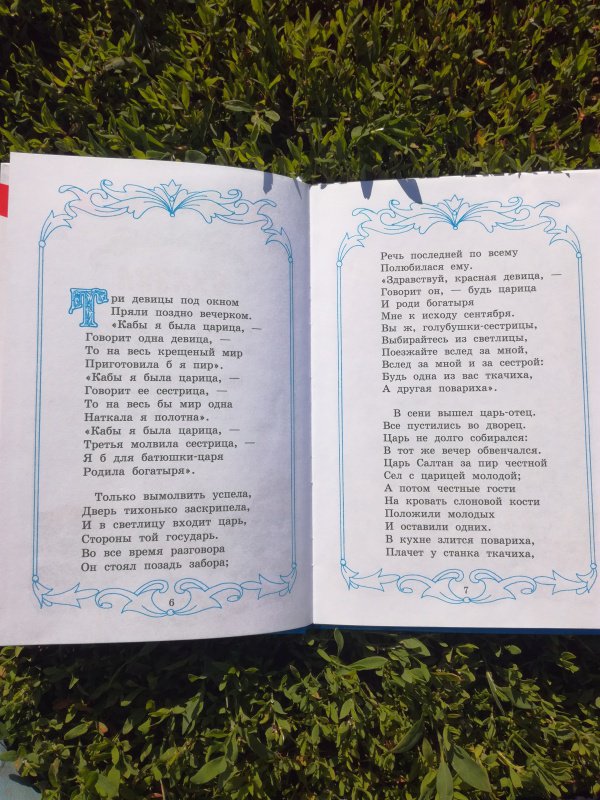 Три девицы под окном
Пряли поздно вечерком.
«Кабы я была царица, —
Говорит одна девица, —
То на весь крещеный мир
Приготовила б я пир».
«Кабы я была царица, —
Говорит ее сестрица, —
То на весь бы мир одна
Наткала я полотна».
«Кабы я была царица, —
Третья молвила сестрица, —
Я б для батюшки-царя
Родила богатыря».
Только вымолвить успела,
Дверь тихонько заскрипела,
И в светлицу входит царь,
Стороны той государь.
Во все время разговора
Он стоял позадь забора;
6
Речь последней по всему
Полюбилася ему.
«Здравствуй, красная девица, —
Говорит он, — будь царица
И роди богатыря
Мне к исходу сентября.
Вы ж, голубушки-сестрицы,
Выбирайтесь из светлицы,
Поезжайте вслед за мной,
Вслед за мной и за сестрой:
Будь одна из вас ткачиха,
А другая повариха».
В сени вышел царь-отец.
Все пустились во дворец.
Царь не долго собирался:
В тот же вечер обвенчался.
Царь Салтан за пир честной
Сел с царицей молодой;
А потом честные гости
На кровать слоновой кости
Положили молодых
И оставили одних.
В кухне злится повариха,
Плачет у станка ткачиха,
7